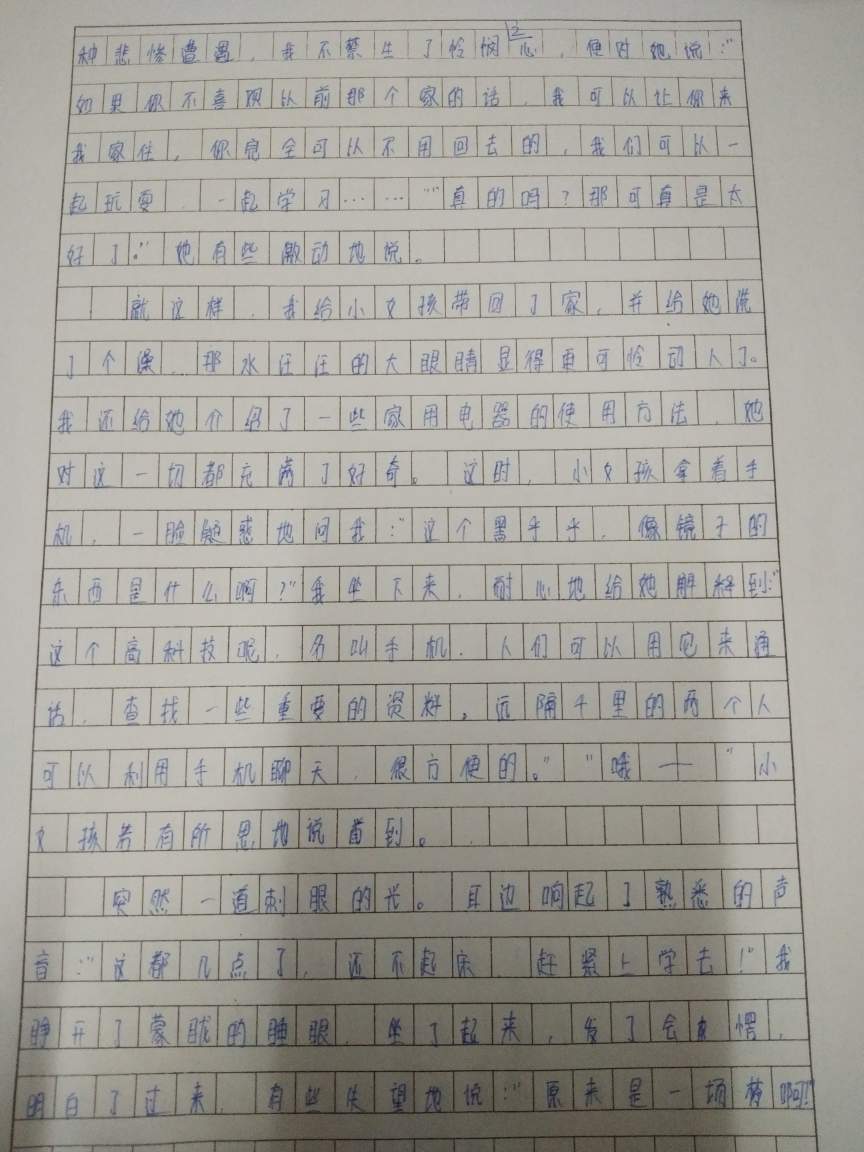 种悲惨遭遇，我不禁生了怜悯之心，便对她说：“
如果你不喜欢以前那个家的话，我可以让你来
我家住，你完全可以不用回去的，我们可以一
起玩耍，一起学习……”“真的吗？那可真是太
好了。”她有些激动地说。
就这样，我给小女孩带回了家，并给她洗
了个澡，那水汪汪的大眼睛显得更可怜动人了。
我还给她介绍了一些家用电器的使用方法，她
对这一切都充满了好奇。这时，小女孩拿着手
机，一脸疑惑地问我：“这个黑乎乎，像镜子的
东西是什么啊？”我坐下来，耐心地给她解释到：“
这个高科技呢，名叫手机，人们可以用它来通
话，查找一些重要的资料，远隔千里的两个人
可以利用手机聊天，很方便的。”“哦——”小
女孩若有所思地说道到。
突然一道刺眼的光。耳边响起了熟悉的声
音：“这都几点了，还不起床，赶紧上学去！”我
睁开了蒙眬的睡眼，坐了起来，发了会愣，
明白了过来，有些失望地说：“原来是一场梦啊！”